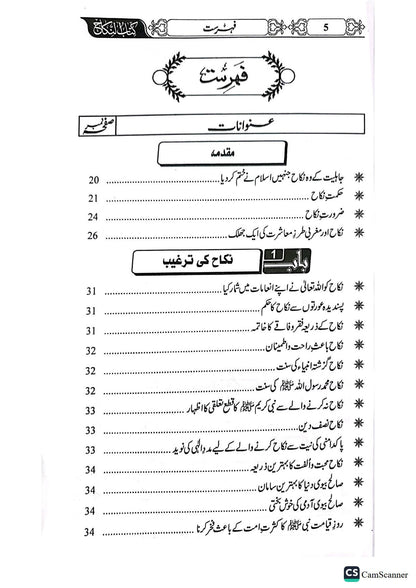 5 فہرست کتاب النکاح
فہرست
عنوانات صفحہ نمبر
مقدمہ
✷ جاہلیت کے وہ نکاح جنہیں اسلام نے ختم کر دیا 20
✷ حکمتِ نکاح 21
✷ ضرورتِ نکاح 24
✷ نکاح اور مغربی طرزِ معاشرت کی ایک جھلک 26
باب 1 نکاح کی ترغیب
✷ نکاح کو اللہ تعالیٰ نے اپنے انعامات میں شمار کیا 31
✷ پسندیدہ عورتوں سے نکاح کا حکم 31
✷ نکاح کے ذریعہ فقر و فاقے کا خاتمہ 31
✷ نکاح باعثِ راحت و اطمینان 32
✷ نکاح گزشتہ انبیاء کی سنت 32
✷ نکاح محمد رسول اللہ ﷺ کی سنت 32
✷ نکاح نہ کرنے والے سے نبی کریم ﷺ کا قطع تعلقی کا اظہار 33
✷ نکاح نصف دین 33
✷ پاکدامنی کی نیت سے نکاح کرنے والے کے لیے مددِ الٰہی کی نوید 33
✷ نکاح محبت و الفت کا بہترین ذریعہ 34
✷ صالح بیوی دنیا کا بہترین سامان 34
✷ صالح بیوی آدمی کی خوش بختی 34
✷ روزِ قیامت نبی ﷺ کا کثرتِ امت کے باعث فخر کرنا 34
CS CamScanner